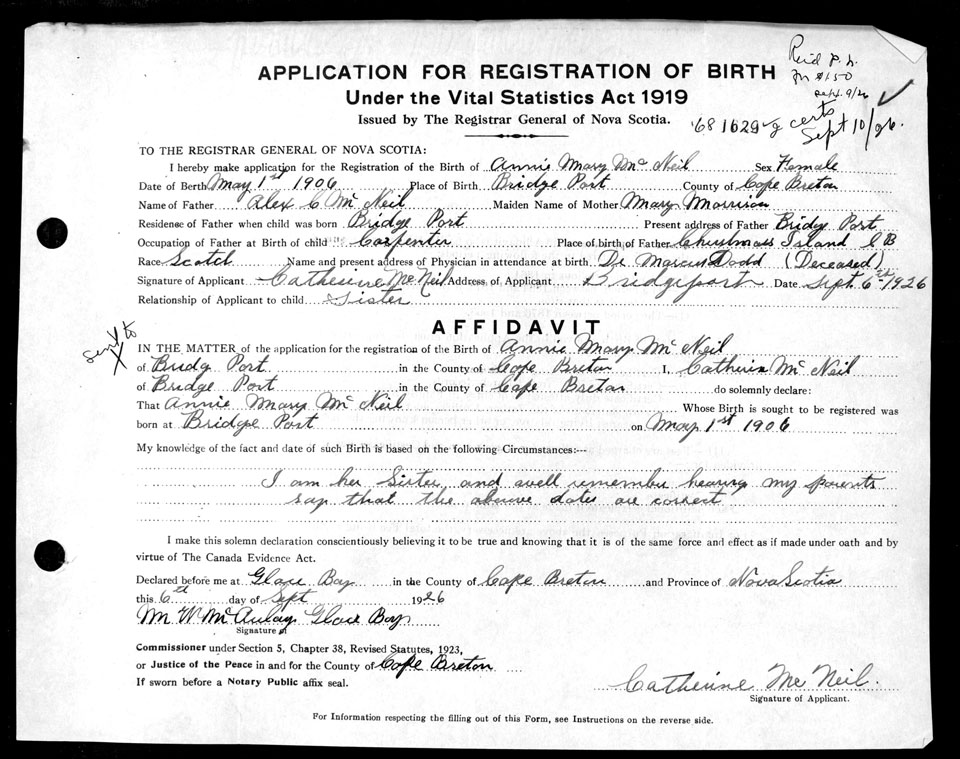 Rec'd P.N.
M $1.50
Sept. 9/26
APPLICATION FOR REGISTRATION OF BIRTH
Under the Vital Statistics Act 1919
Issued by The Registrar General of Nova Scotia.
'68 1629 2 certs
Sept 10/26.
TO THE REGISTRAR GENERAL OF NOVA SCOTIA:
I hereby make application for the Registration of the Birth of Annie Mary Mc Neil Sex Female
Date of Birth May 1st 1906 Place of Birth Bridge Port County of Cape Breton
Name of Father Alex C Mc Neil Maiden Name of Mother Mary Morrison
Residence of Father when child was born Bridge Port Present address of Father Bridge Port
Occupation of Father at Birth of child Carpenter Place of birth of Father Christmass Island C B
Race Scotch Name and present address of Physician in attendance at birth Dr Marcus Dodd (Deceased)
Signature of Applicant Catherine McNeil Address of Applicant Bridgeport Date Sept. 6th 1926
Relationship of Applicant to child Sister
Sent to
X
AFFIDAVIT
IN THE MATTER of the application for the registration of the Birth of Annie Mary Mc Neil
of Bridg Port in the County of Cape Breton I, Catherin Mc Neil
of Bridge Port in the County of Cape Breton do solemnly declare:
That Annie Mary Mc Neil Whose Birth is sought to be registered was
born at Bridge Port on May 1st 1906
My knowledge of the fact and date of such Birth is based on the following Circumstances:--
I am her Sister and well remember hearing my parents
say that the above dates are correct
I make this solemn declaration conscientiously believing it to be true and knowing that it is of the same force and effect as if made under oath and by
virtue of The Canada Evidence Act.
Declared before me at Glace Bay in the County of Cape Breton and Province of Nova Scotia
this 6th day of Sept 1926
M W McAulay Glace Bay
Signature of
Commissioner under Section 5, Chapter 38, Revised Statutes, 1923,
or Justice of the Peace in and for the County of Cape Breton
If sworn before a Notary Public affix seal.
Catherine Mc Neil.
Signature of Applicant.
For Information respecting the filling out of this Form, see Instructions on the reverse side.